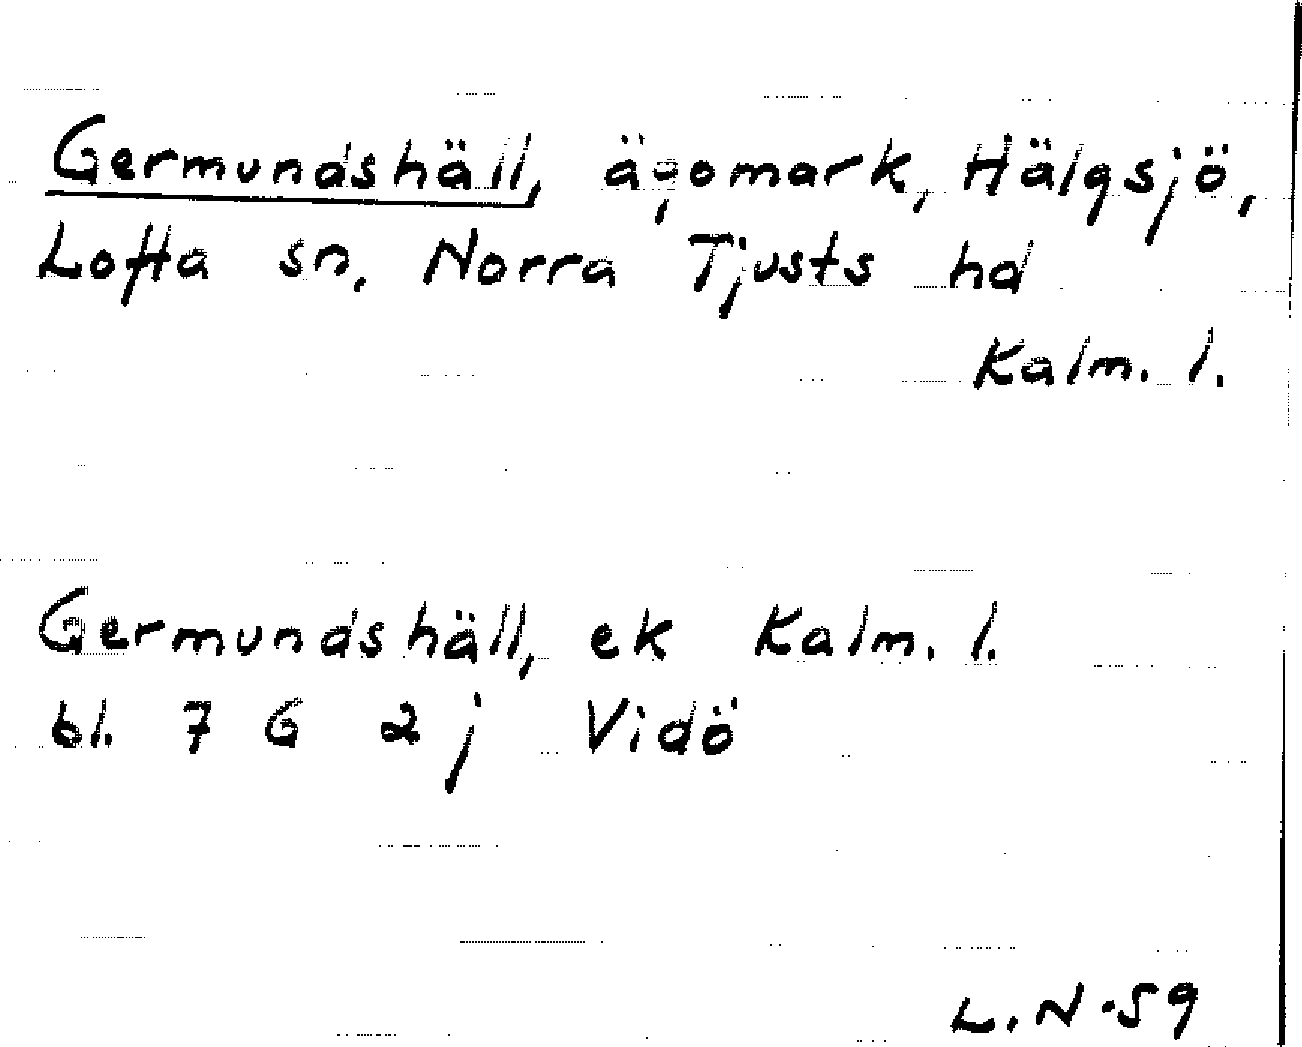 Germundshäll, ägomark, Hälgsjö,
Lofta sn. Norra Tjusts hd
Kalm. l.
Germundshäll, ek Kalm. l.
bl. 7 G 2 j Vidö
L. N -59